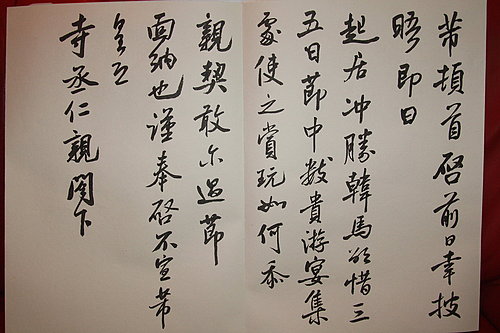 芾頓首啓前日幸披
晤即日
起居冲勝韓馬欲惜三
五日節中數貴游宴集
處使之賞玩如何忝
親契敢尔過節
面納也謹奉啓不宣芾
寺丞仁親閣下